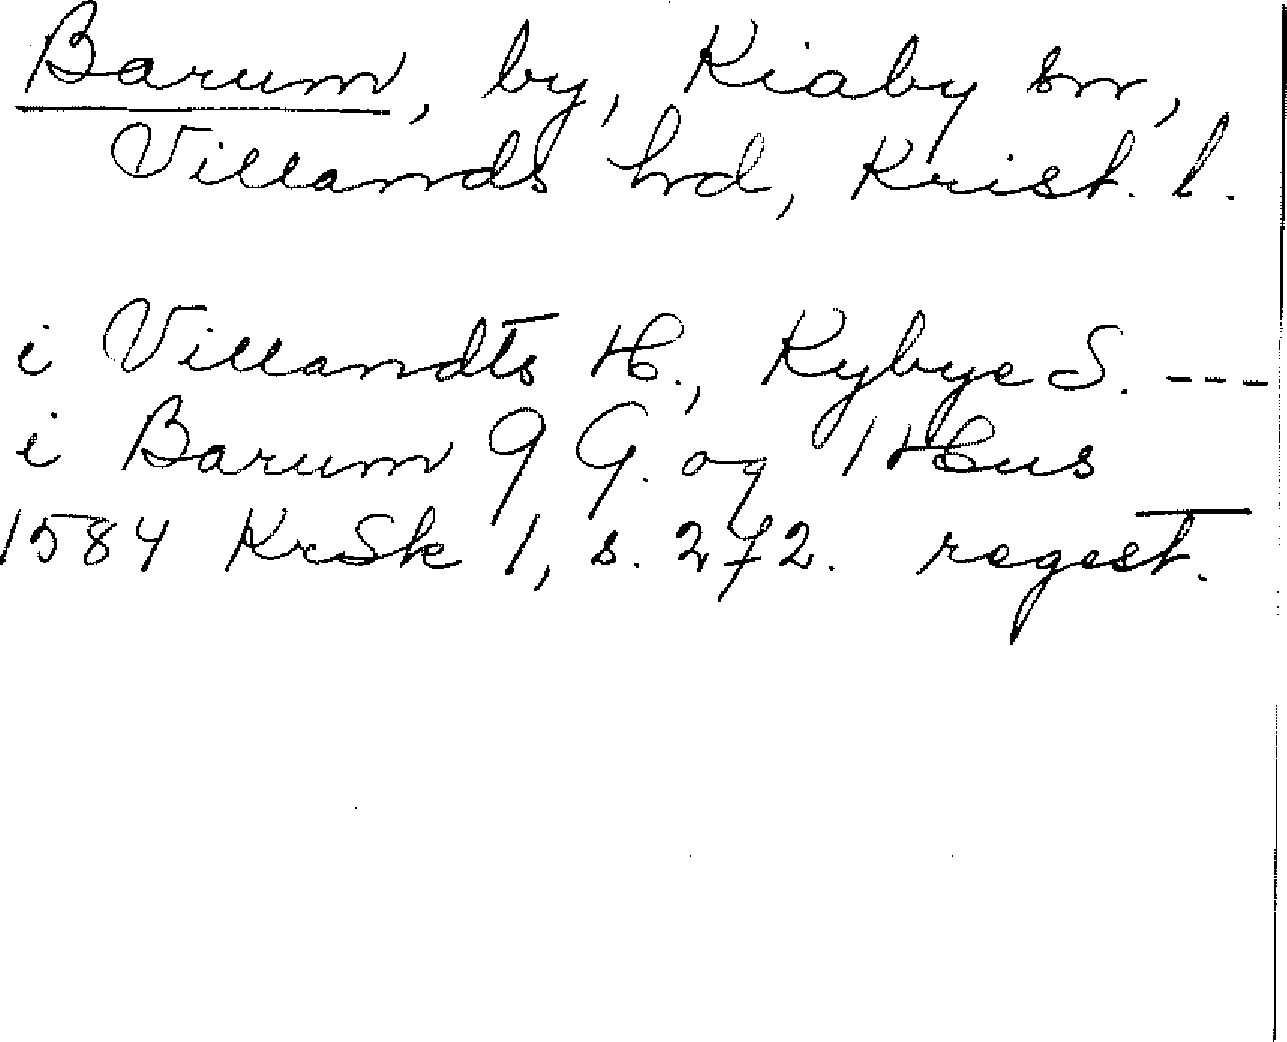 Barum, by, Kiaby sn,
Villands hd, Krist. l.
i Villandts H., Kybye S. ---
i Barum 9 G. og 1 Hus
1584 KrSk 1, s. 272. regest.